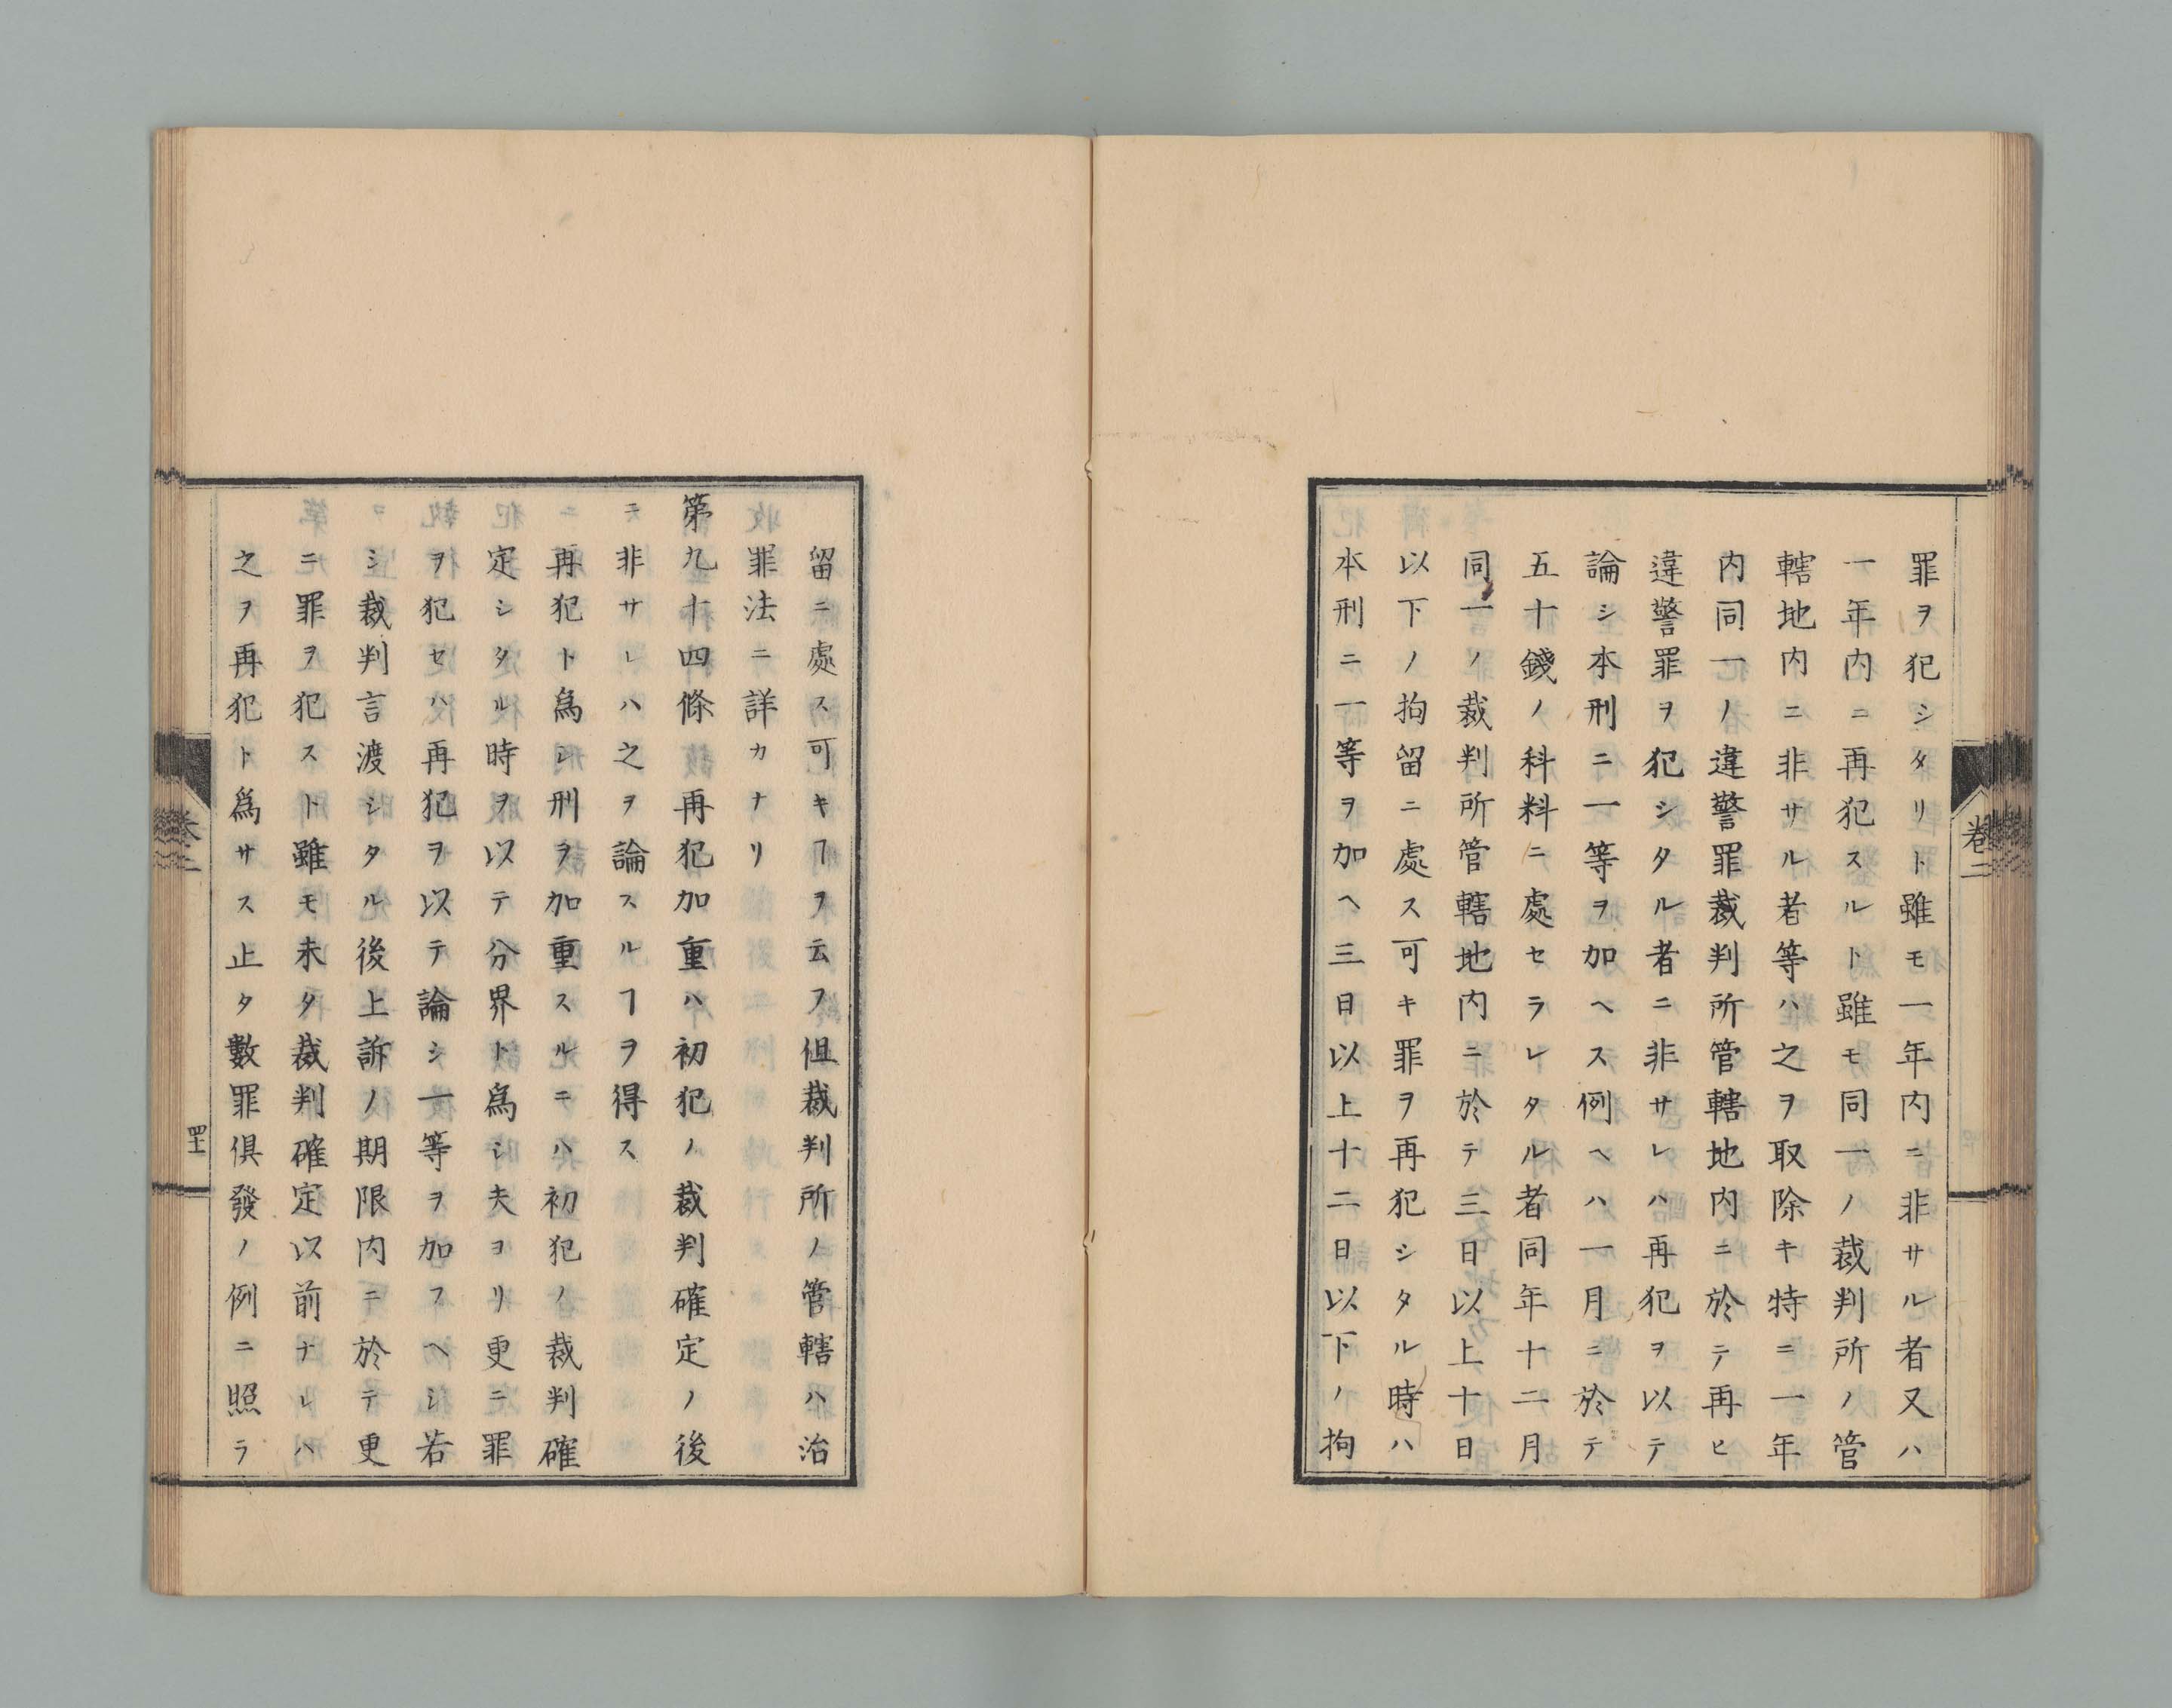 罪ヲ犯シタリト雖モ一年内ニ非サル者又ハ
一年内ニ再犯スルト雖モ同一ノ裁判所ノ管
轄地内ニ非サル者等ハ之ヲ取除キ特ニ一年
内同一ノ違警罪裁判所管轄地内ニ於テ再ヒ
違警罪ヲ犯シタル者ニ非サレハ再犯ヲ以テ
論シ本刑ニ一等ヲ加ヘス例ヘハ一月ニ於テ
五十錢ノ科料ニ處セラレタル者同年十二月
同一ノ裁判所管轄地内ニ於テ三日以上十日
以下ノ拘留ニ處ス可キ罪ヲ再犯シタル時ハ
本刑ニ一等ヲ加ヘ三日以上十二日以下ノ拘
卷二
留ニ處ス可キヿヲ云フ但裁判所ノ管轄ハ治
罪法ニ詳カナリ
第九十四條 再犯加重ハ初犯ノ裁判確定ノ後
ニ非サレハ之ヲ論スルヿヲ得ス
再犯ト爲シ刑ヲ加重スルニハ初犯ノ裁判確
定シタル時ヲ以テ分界ト爲シ夫ヨリ更ニ罪
ヲ犯セハ再犯ヲ以テ論シ一等ヲ加フヘシ若
シ裁判言渡シタル後上訴ノ期限内ニ於テ更
ニ罪ヲ犯スト雖モ未タ裁判確定以前ナレハ
之ヲ再犯ト爲サス止タ數罪倶發ノ例ニ照ラ
卷二